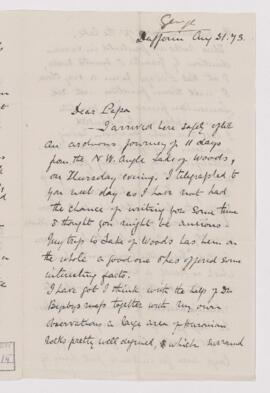 George
Dufferin Aug 31. 73.
Dear Papa
I arrived here safely after
an arduous journey of 11 days
from the N.W. Angle Lake of Woods,
on Thursday evening. I telegraphed to
you next day as I have not had
the chance of writing you some time
& thought you might be anxious.
My trip to Lake of Woods has been on
the whole a good one & has offered some
interesting facts.
I have got I think with the help of Dr
Bigsbys map together with my own
observations a large area of Huronian
rocks pretty well defined, & which